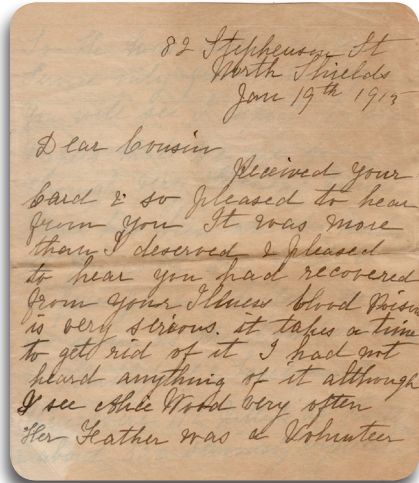 82 Stephenson St
North Shields
Jan 19th 1915
Dear Cousin
Received your
Card & so pleased to hear
from you It was more
than I deserved & pleased
to hear you had recovered
from your Illness blood Poison
is very serious. it takes a time
to get rid of it I had not
heard anything of it although
I see Alice Wood very often
Her Feather was a Volunteer